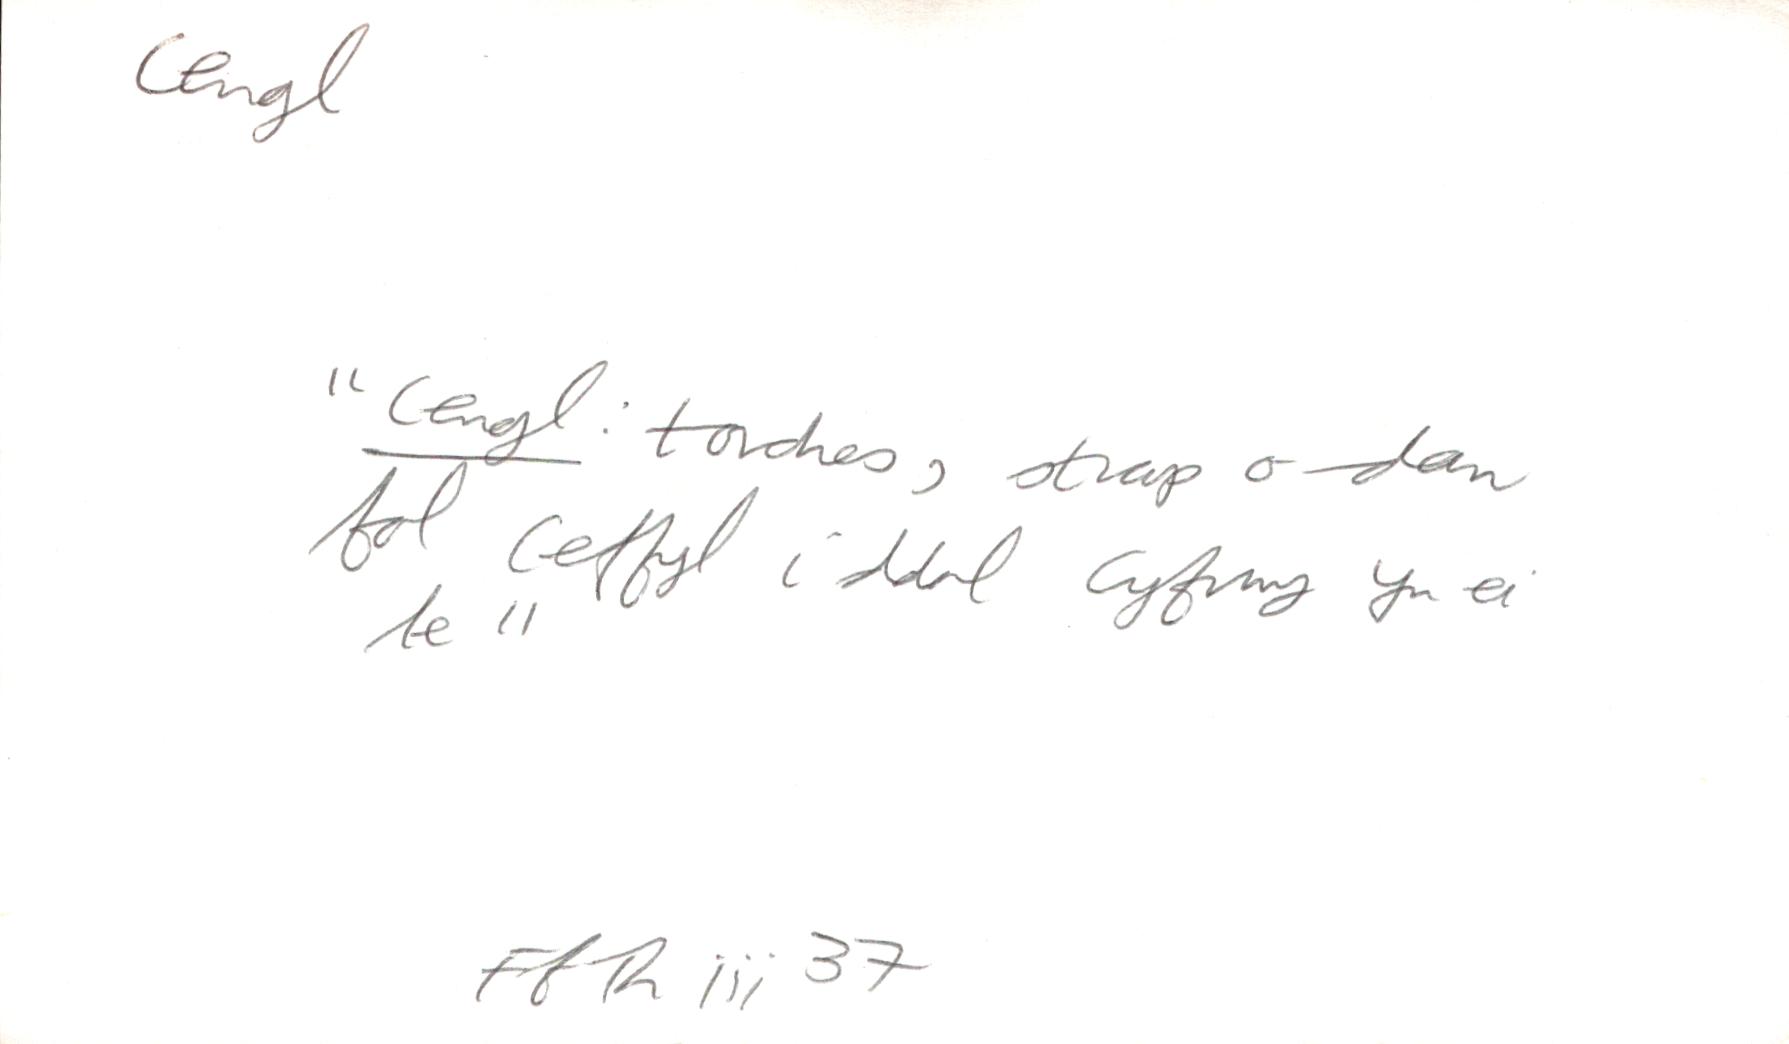 Cengl
"Cengl: torches, strap o dan
fol ceffyl i ddal cyfrwy yn ei
le"
FfTh iii 37